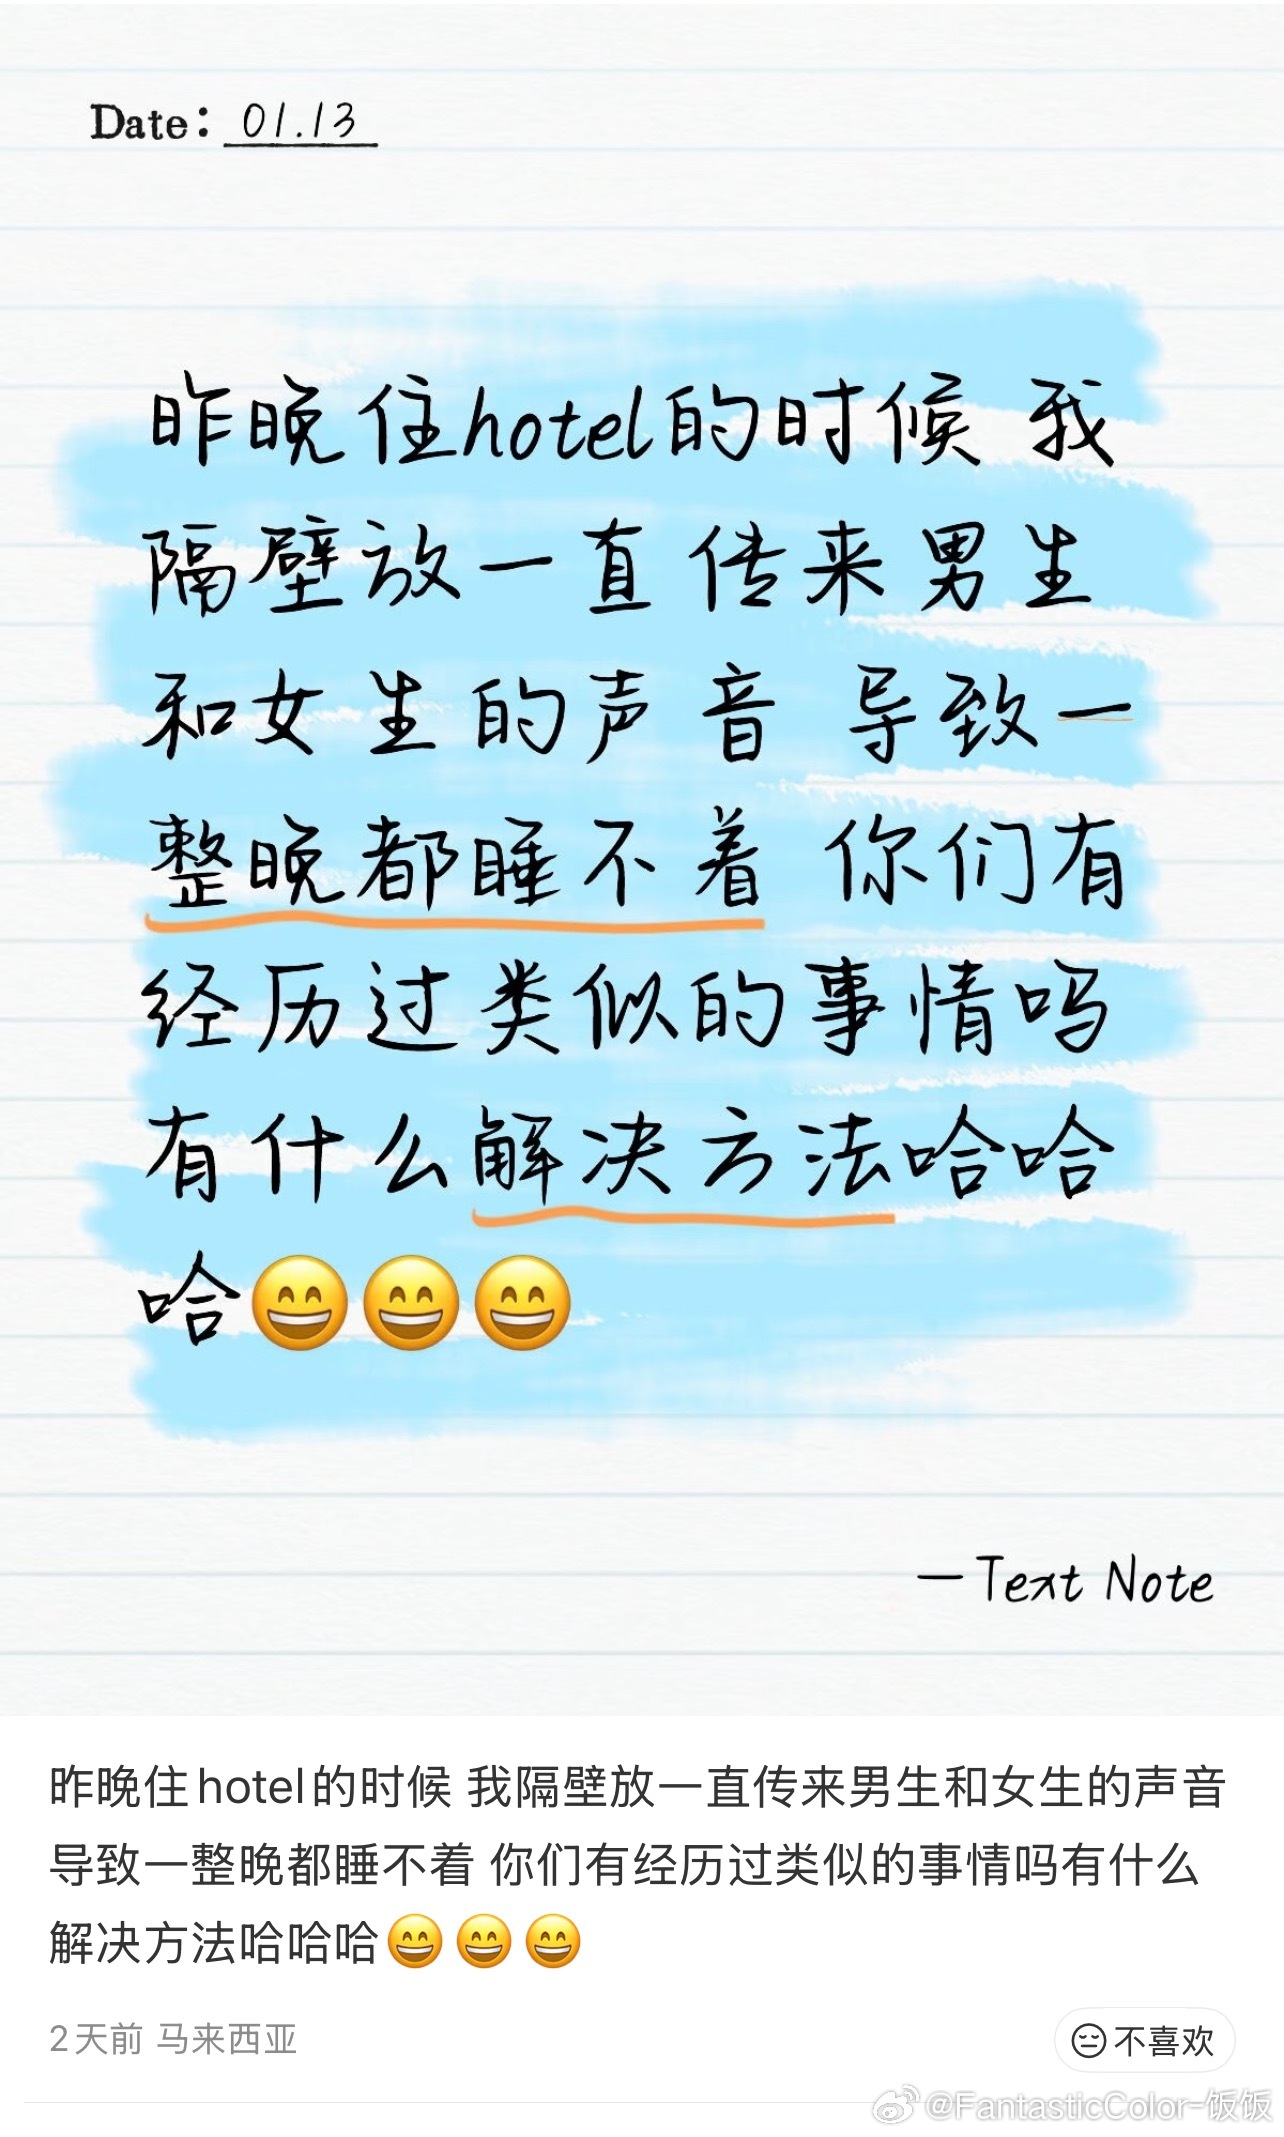 Date: 01.13
昨晚住hotel的时候 我
隔壁放一直传来男生
和女生的声音 导致一
整晚都睡不着 你们有
经历过类似的事情吗
有什么解决方法哈哈
哈😄😄😄
—Text Note
昨晚住hotel的时候 我隔壁放一直传来男生和女生的声音
导致一整晚都睡不着 你们有经历过类似的事情吗有什么
解决方法哈哈哈😄😄😄
2天前 马来西亚
不喜欢
@FantasticColor-饭饭